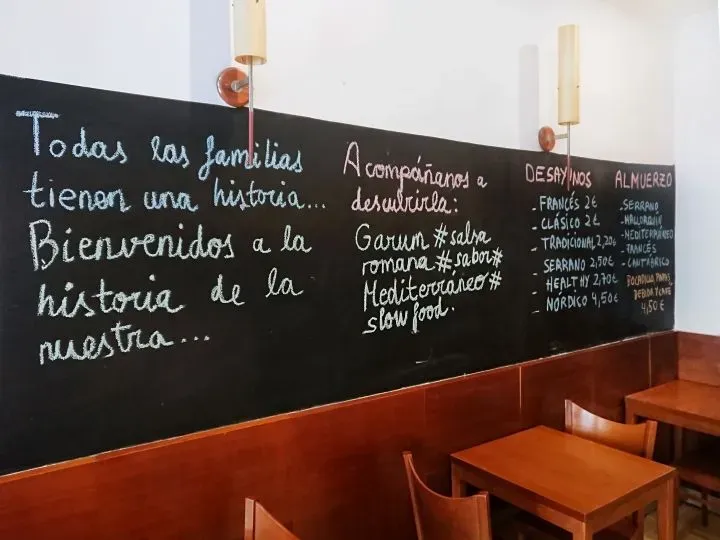 Todas las familias
tienen una historia...
Bienvenidos a la
historia de la
nuestra...
Acompáñanos a
descubrirla:
Garum #salsa
romana #sabor#
Mediterráneo #
slow food.
DESAYUNOS
- FRANCÉS 2€
- CLÁSICO 2€
- TRADICIONAL 2,20€
- SERRANO 2,50€
- HEALTHY 2,70€
- NORDICO 4,50€
ALMUERZO
- SERRANO
- MALLORQUÍN
- MEDITERRÁNEO
- FRANCÉS
- CANTÁBRICO
BOCADILLO, PAPAS,
BEBIDA Y CAFÉ
4,50€